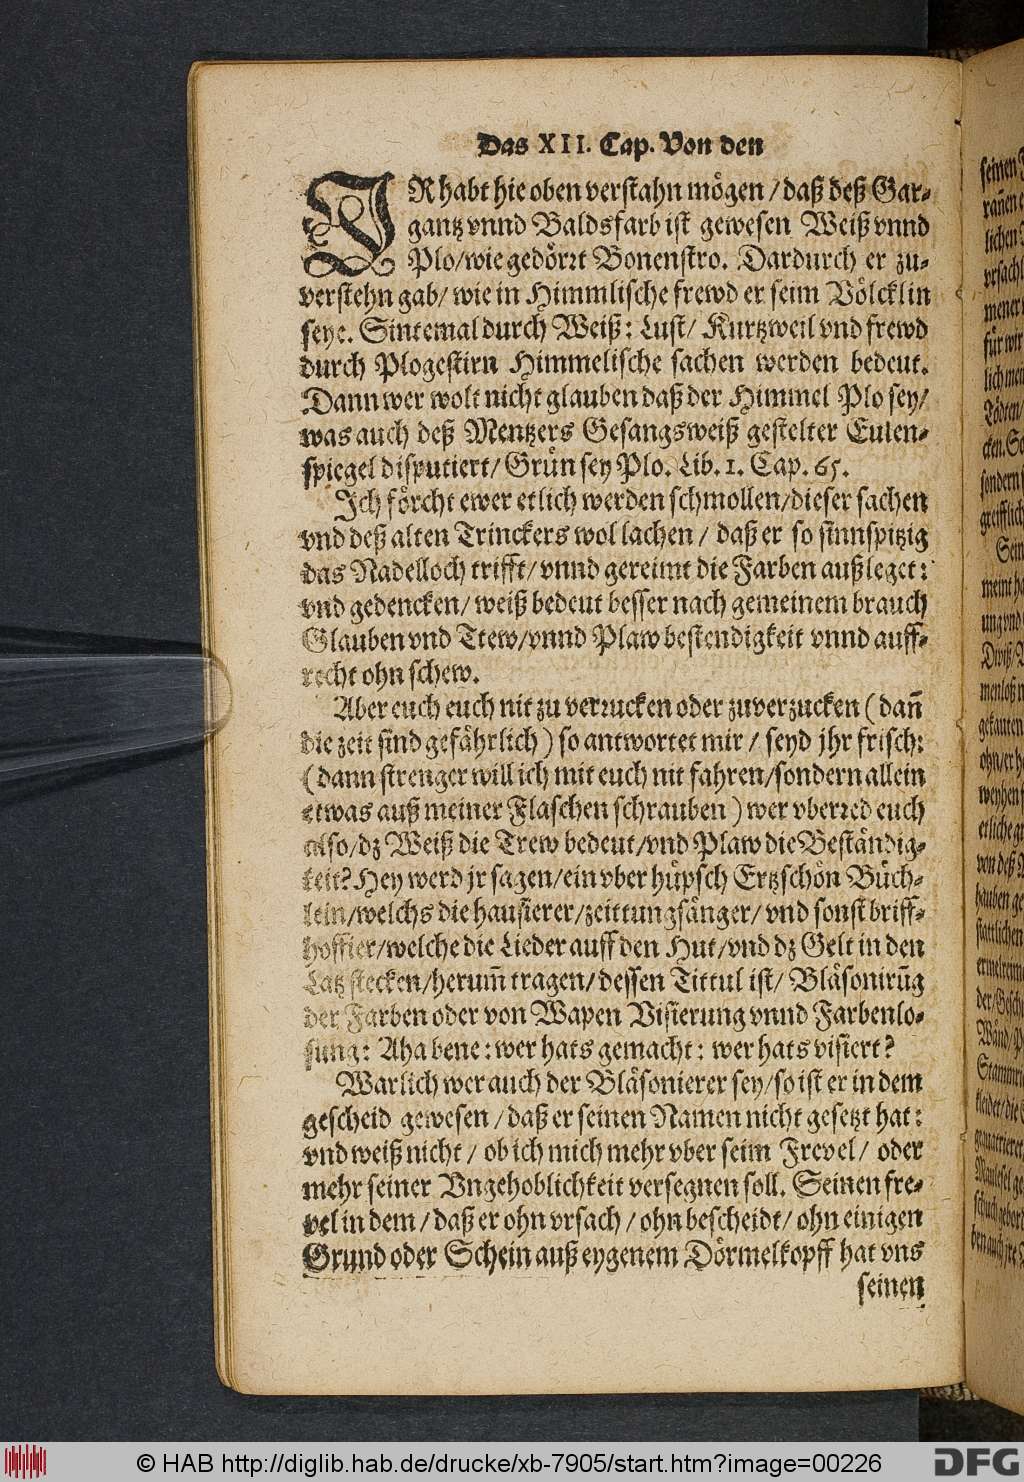 Das XII. Cap. Von den
IR habt hie oben verstahn mögen / daß deß Gar-
gantz vnnd Baldsfarb ist gewesen Weiß vnnd
Plo/wie gedörꝛt Bonenstro. Dardurch er zu-
verstehn gab/ wie in Himmlische frewd er seim Völcklin
seye. Sintemal durch Weiß: Lust/ Kurtzweil vnd frewd
durch Plogestirn Himmelische sachen werden bedeut.
Dann wer wolt nicht glauben daß der Himmel Plo sey/
was auch deß Mentzers Gesangsweiß gestelter Eulen-
spiegel disputiert/ Grün sey Plo. Lib. 1. Cap. 65.
Ich förcht ewer etlich werden schmollen/dieser sachen
vnd deß alten Trinckers wol lachen / daß er so sinnspitzig
das Nadelloch trifft/ vnnd gereimt die Farben außleget:
vnd gedencken/ weiß bedeut besser nach gemeinem brauch
Glauben vnd Ttew/vnnd Plaw bestendigkeit vnnd auff-
recht ohn schew.
Aber euch euch nit zu verꝛucken oder zuverzucken ( dañ
die zeit sind gefährlich ) so antwortet mir / seyd jhr frisch:
( dann strenger will ich mit euch nit fahren/sondern allein
etwas auß meiner Flaschen schrauben ) wer vberꝛed euch
also/dz Weiß die Trew bedeut/vnd Plaw die Beständig-
keit? Hey werd jr sagen/ein vber hüpsch Ertzschön Büch-
lein/welchs die hausierer/zeittungsänger/ vnd sonst briff-
hoffier/welche die Lieder auff den Hut/vnd dz Gelt in den
Latz stecken/herum̃ tragen/ dessen Tittul ist/ Bläsonirũg
der Farben oder von Wapen Visierung vnnd Farbenlo-
sung: Aha bene : wer hats gemacht : wer hats visiert?
Warlich wer auch der Bläsonierer sey/so ist er in dem
gescheid gewesen / daß er seinen Namen nicht gesetzt hat:
vnd weiß nicht / ob ich mich mehr vber seim Frevel / oder
mehr seiner Vngehoblichkeit versegnen soll. Seinen fre-
vel in dem / daß er ohn vrsach / ohn bescheidt/ ohn einigen
Grund oder Schein auß eygenem Dörmelkopff hat vns
seinen
© HAB http://diglib.hab.de/drucke/xb-7905/start.htm?image=00226
DFG